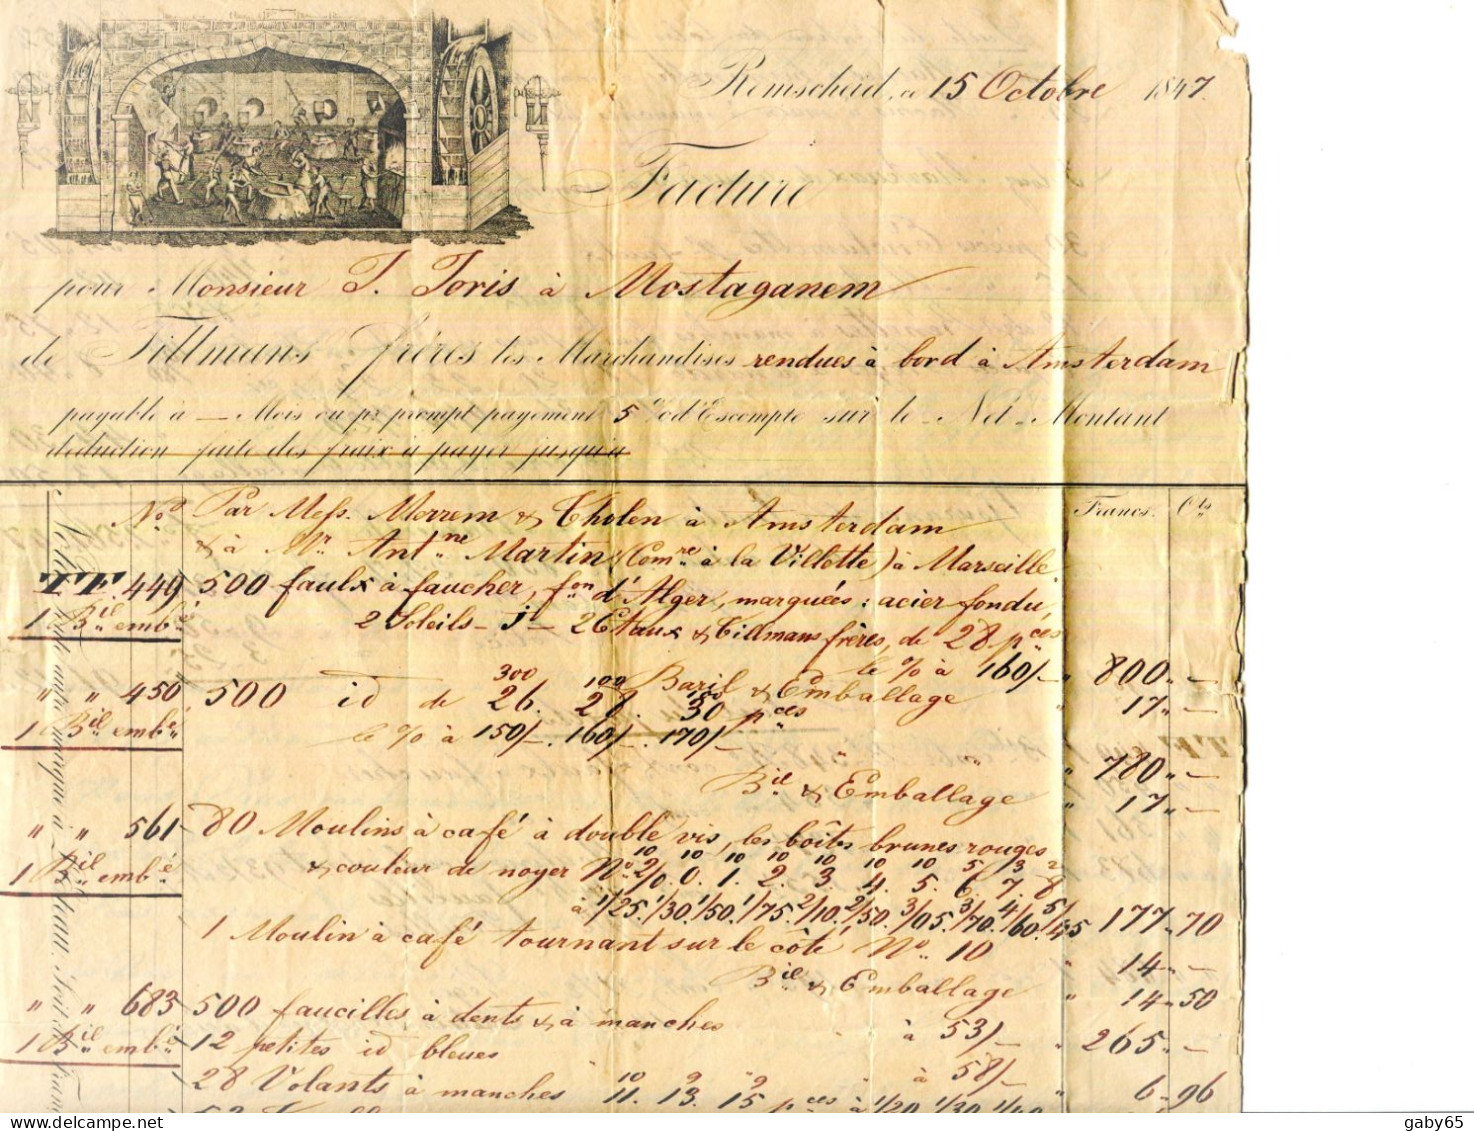 Remscheid, a 15 Octobre 1847.
Facture
pour Monsieur J. Joris à Mostaganem
de Tillmans frères les Marchandises rendues à bord à Amsterdam
payable à — Mois ou pr prompt payement 5 % d'Escompte sur le Net-Montant
deduction faite des frais à payer jusqu'a
Nos Par Mess. Merrem & Cholen à Amsterdam Francs. Cts
& à Mr Antne Martin (Comre à la Villette) à Marseille.
TF. 449 500 faulx à faucher, fon d'Alger, marquées: acier fondu,
1 Bil embé 2 Soleils — J — 2 Etaux & Tillmans frères, de 28 pces
le % à 160/— " 800 " —
Baril & Emballage " 17 " —
300 100 100
" " 450 500 id de 26. 28. 30 pces
1 Bil embé le % à 150/—. 160/—. 170/— " 780 " —
Bil & Emballage " 17 " —
" " 561 80 Moulins à café à double vis, les boîtes brunes rouges
10 10 10 10 10 10 10 5 3 2
1 Bil embé & couleur de noyer No 2/0. 0. 1. 2. 3. 4. 5. 6. 7. 8
à 1/25. 1/30. 1/50. 1/75. 2/10. 2/50. 3/05. 3/70. 4/60. 5/45 177 " 70
1 Moulin à café tournant sur le côté No 10 " 14 " —
Bil & Emballage " 14 " 50
" " 683 500 faucilles à dents & à manches à 53/— " 265 " —
1 Bil embé 12 petites id bleues à 58/— " 6 " 96
10 9 9
28 Volants à manches 11. 13. 15 pces à 1/20. 1/30. 1/40
gaby65